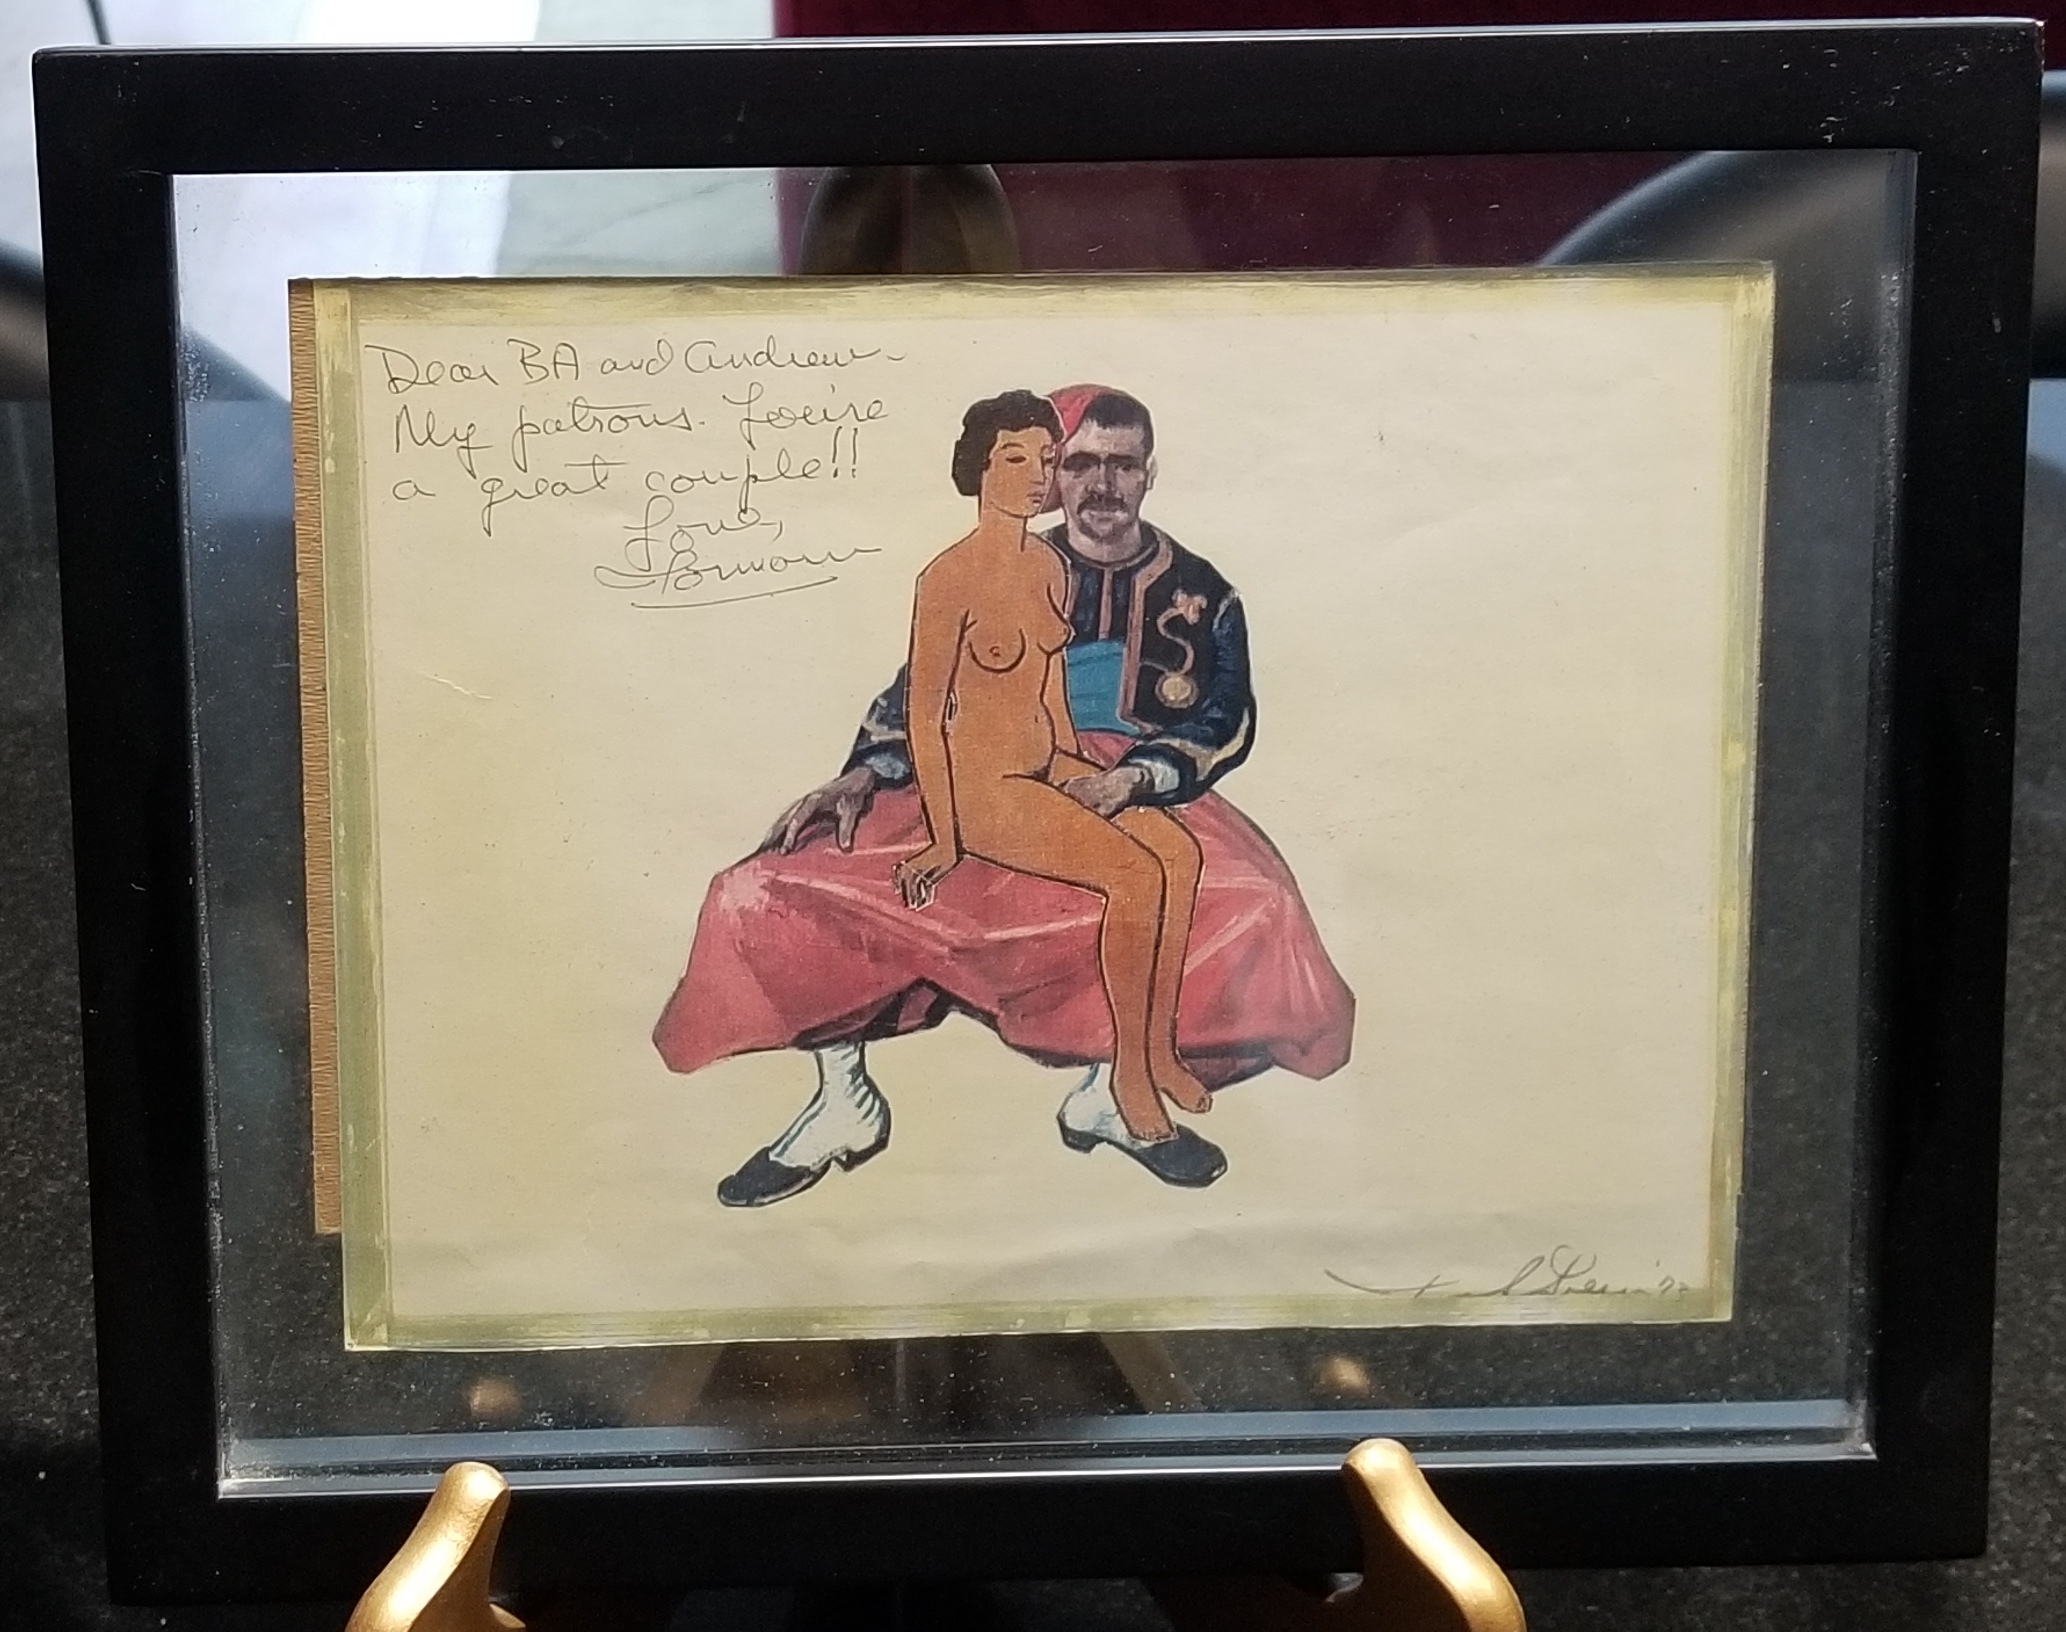 Dear BA and Andrew-
My patrons. You're
a great couple!!
Love,
Norman